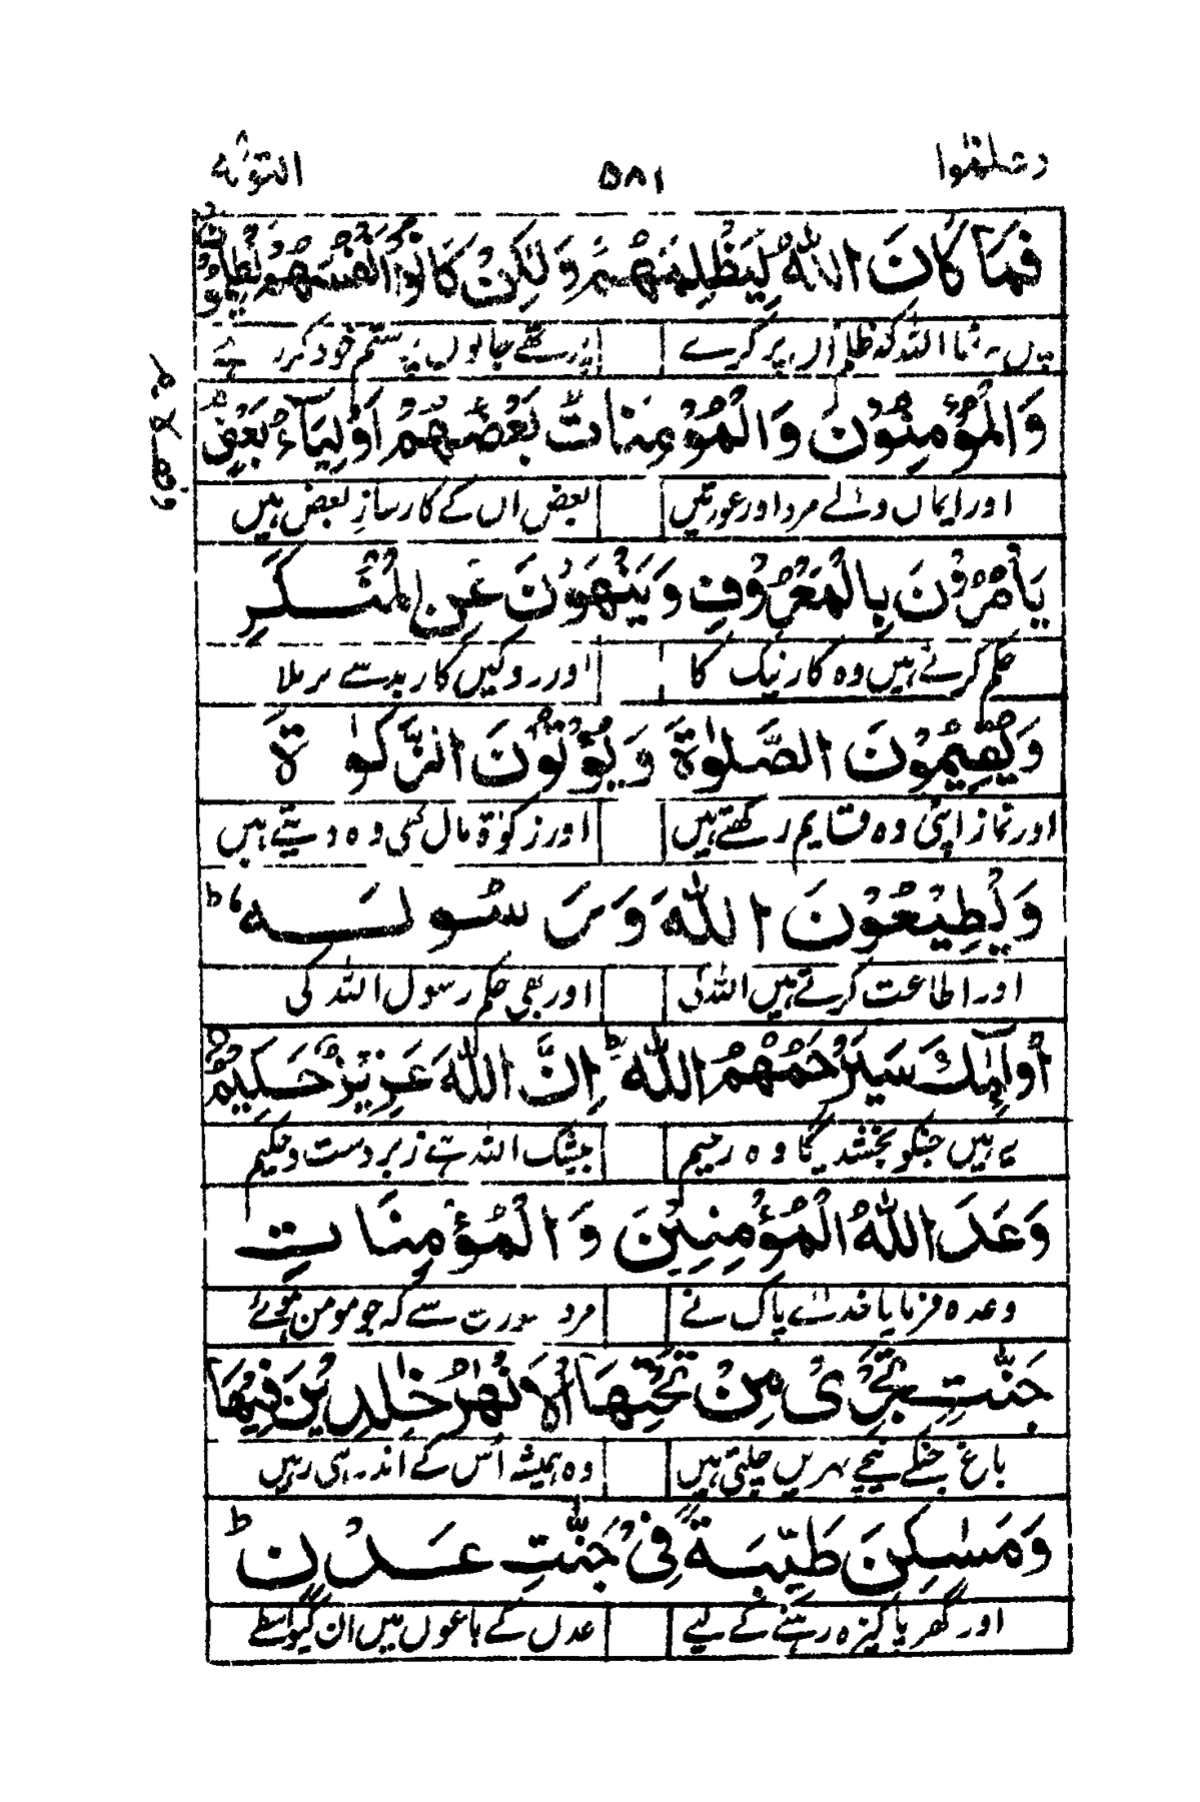 واعلموا ۵۸۱ التوبة
فَمَا كَانَ اللّٰهُ لِيَظْلِمَهُمْ وَلٰكِنْ كَانُوْٓا اَنْفُسَهُمْ يَظْلِمُوْنَ
نہ تھا اللہ کہ ظلم اُن پر کرے پر تھے جانوں پہ ستم خود کر رہے
وَالْمُؤْمِنُوْنَ وَالْمُؤْمِنَاتُ بَعْضُهُمْ اَوْلِيَآءُ بَعْضٍ
اور ایمان والے مرد اور عورتیں بعض اں کے کارسازِ بعض ہیں
يَاْمُرُوْنَ بِالْمَعْرُوْفِ وَيَنْهَوْنَ عَنِ الْمُنْكَرِ
حکم کرتے ہیں وہ کار نیک کا اور روکیں کار بد سے برملا
وَيُقِيْمُوْنَ الصَّلٰوةَ وَيُؤْتُوْنَ الزَّكٰوةَ
اور نماز اپنی وہ قایم رکھتے ہیں اور زکوٰۃ مال بھی وہ دیتے ہیں
وَيُطِيْعُوْنَ اللّٰهَ وَرَسُوْلَهٗ ط
اور اطاعت کرتے ہیں اللہ کی اور بھی حکم رسول اللہ کی
اُولٰٓئِكَ سَيَرْحَمُهُمُ اللّٰهُ ط اِنَّ اللّٰهَ عَزِيْزٌ حَكِيْمٌ
یہ ہیں جنکو بخشدیگا وہ رحیم بیشک اللہ ہے زبردست و حکیم
وَعَدَ اللّٰهُ الْمُؤْمِنِيْنَ وَالْمُؤْمِنَاتِ
وعدہ فرمایا خدائے پاک نے مرد عورت سے کہ جو مومن ہوئے
جَنّٰتٍ تَجْرِيْ مِنْ تَحْتِهَا الْاَنْهٰرُ خٰلِدِيْنَ فِيْهَا
باغ جنکے نیچے نہریں چلتی ہیں وہ ہمیشہ اُس کے اندر ہی رہیں
وَمَسٰكِنَ طَيِّبَةً فِيْ جَنّٰتِ عَدْنٍ ط
اور گھر پاکیزہ رہنے کے لیے عدن کے باغوں میں ان کیواسطے